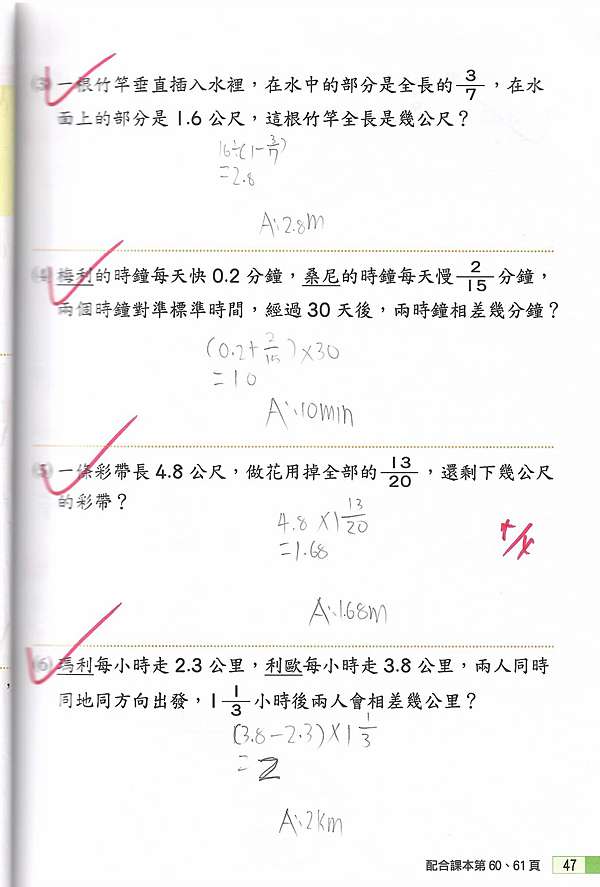 (3) 一根竹竿垂直插入水裡，在水中的部分是全長的 3/7 ，在水
面上的部分是 1.6 公尺，這根竹竿全長是幾公尺？
16÷(1-3/7)
=2.8
A:2.8m
(4) 梅利的時鐘每天快 0.2 分鐘，桑尼的時鐘每天慢 2/15 分鐘，
兩個時鐘對準標準時間，經過 30 天後，兩時鐘相差幾分鐘？
(0.2+2/15)×30
=10
A:10min
(5) 一條彩帶長 4.8 公尺，做花用掉全部的 13/20 ，還剩下幾公尺
的彩帶？
4.8×1 13/20
=1.68
A:1.68m
(6) 瑪利每小時走 2.3 公里，利歐每小時走 3.8 公里，兩人同時
同地同方向出發，1 1/3 小時後兩人會相差幾公里？
(3.8-2.3)×1 1/3
=2
A:2km
配合課本第 60、61 頁 47